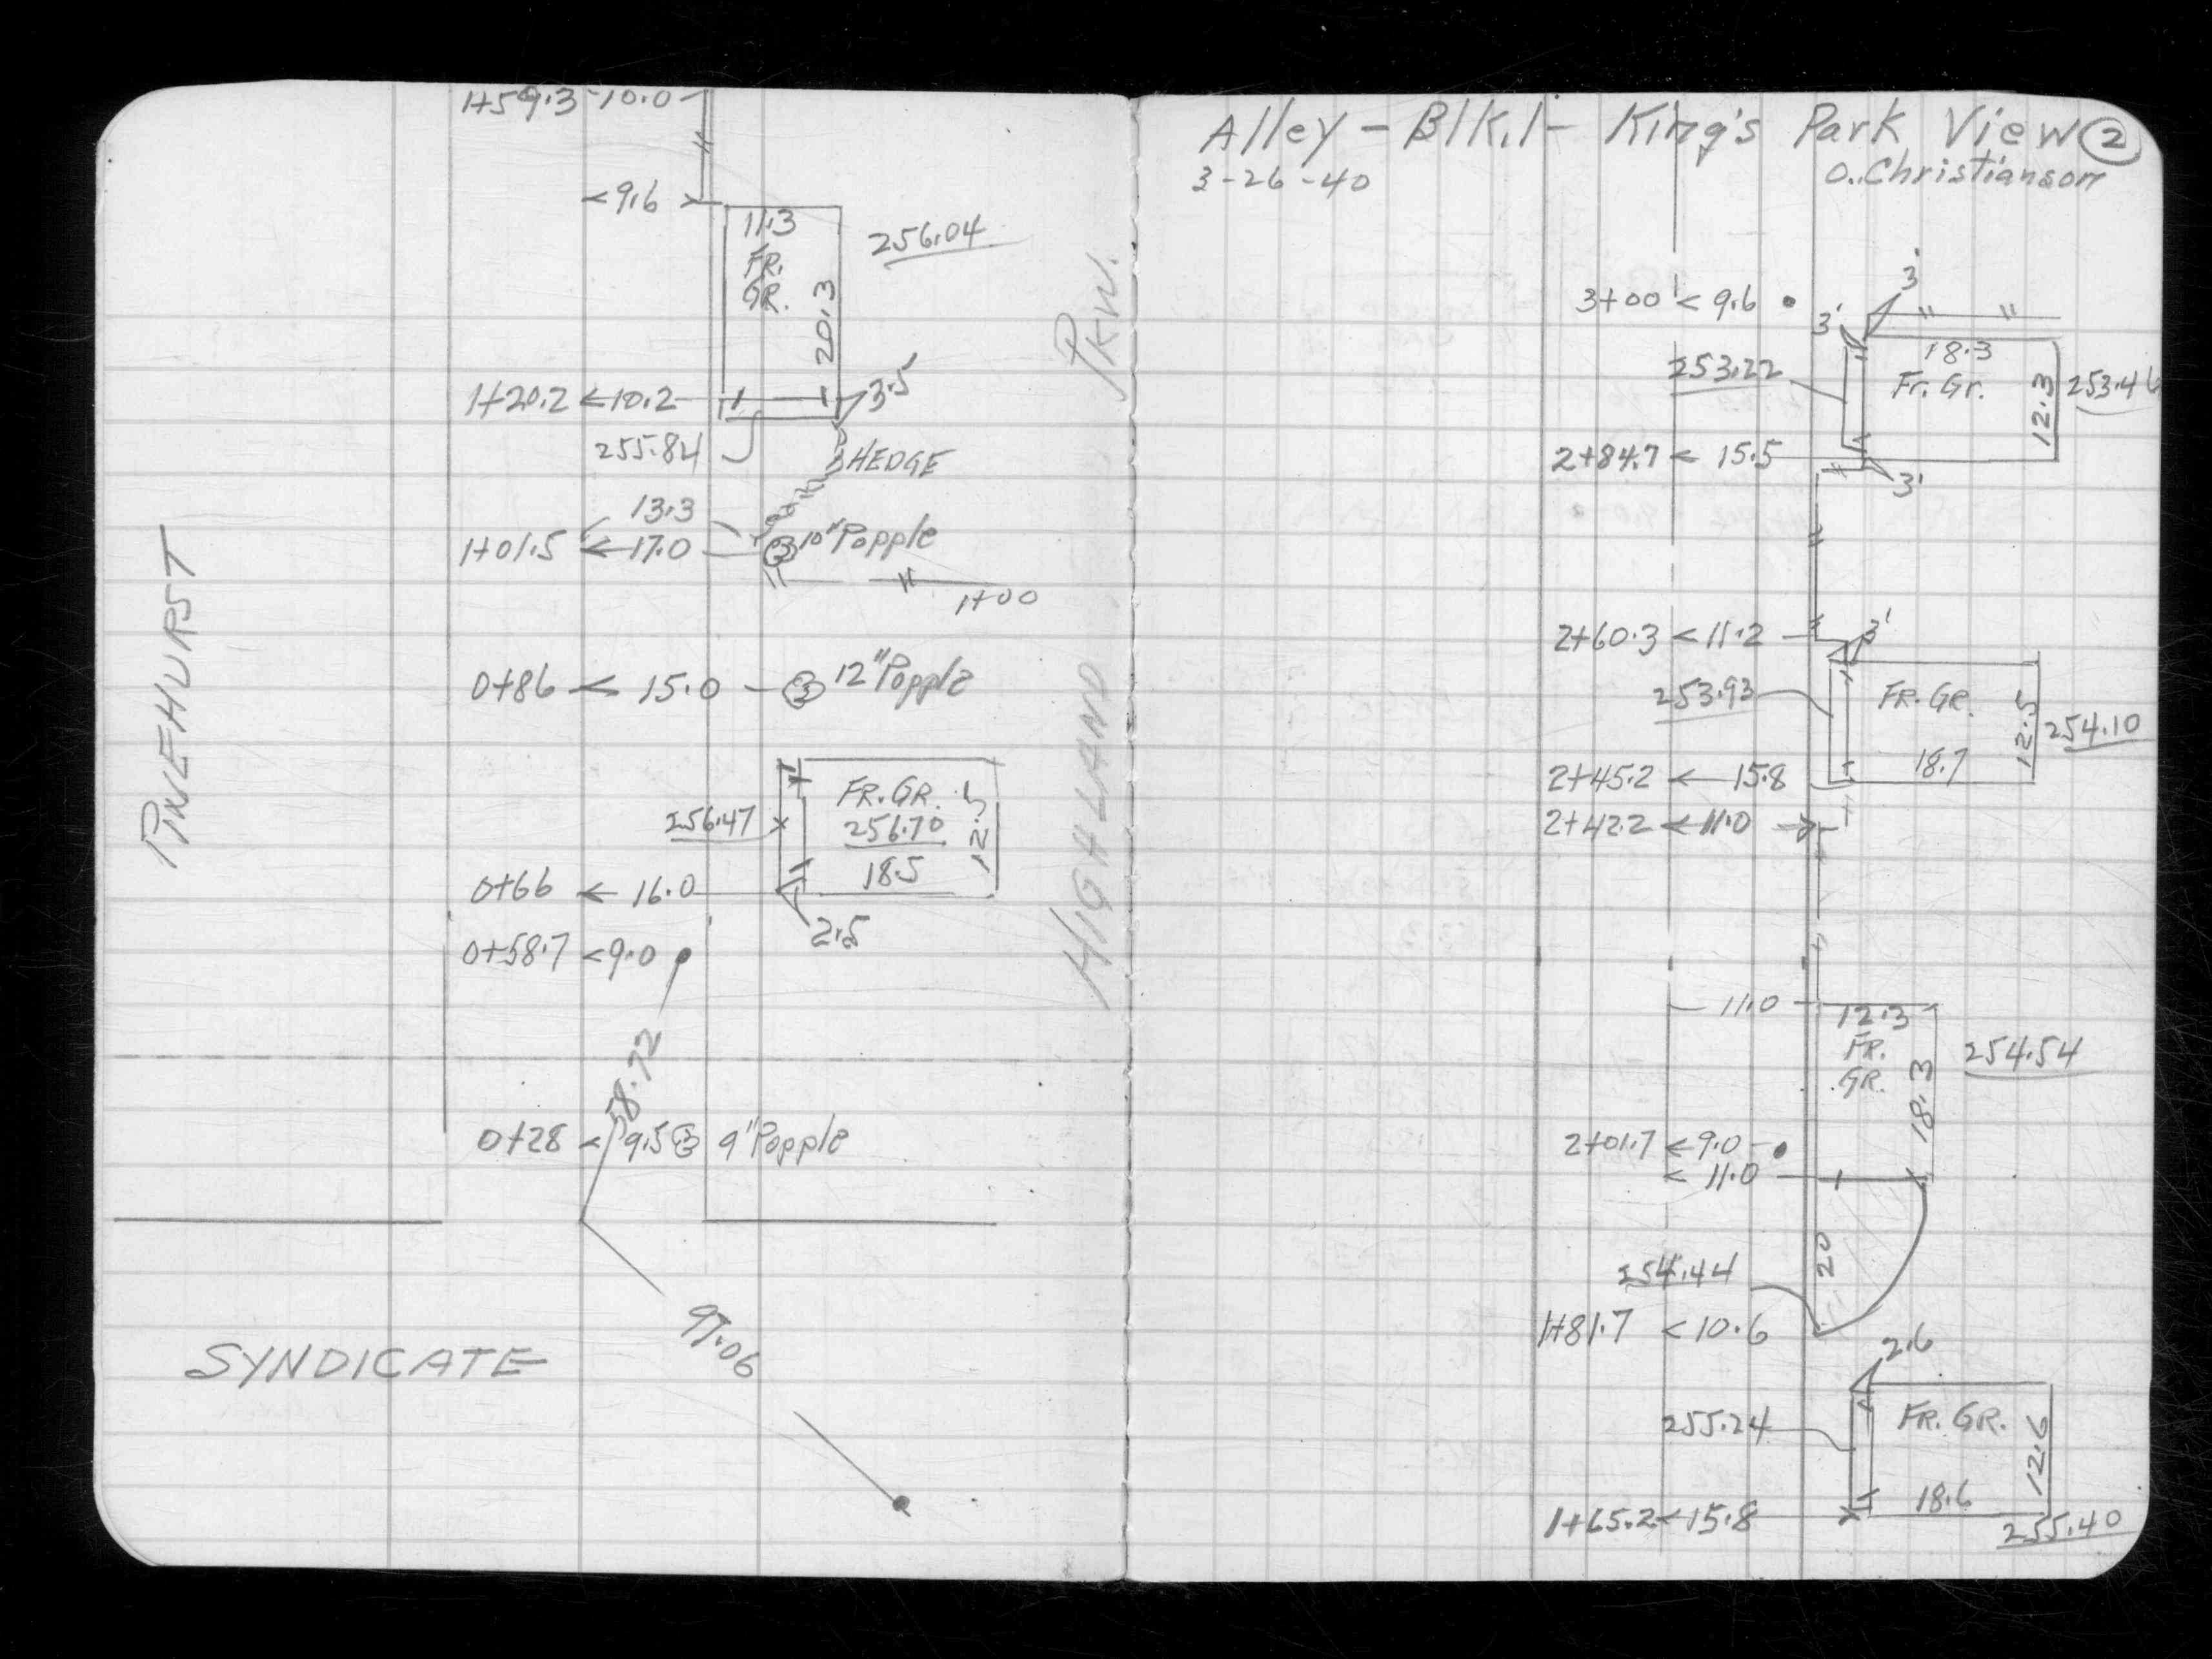 1+59.3 10.0
<9.6
11.3
FR.
GR.
20.3
256.04
1+20.2 <10.2
3.5
255.84
HEDGE
13.3
1+01.5 <17.0 10" Popple
1+00
PINEHURST
0+86 < 15.0 12" Popple
FR. GR.
256.70
18.5
12.5
256.47
0+66 < 16.0
2.5
0+58.7 <9.0
58.72
0+28 < 9.5 9" Popple
SYNDICATE
97.06
HIGHLAND PKW.
Alley - Blk. 1 - King's Park View 2
3-26-40 O. Christianson
3+00 < 9.6
3'
3'
253.22
18.3
Fr. Gr.
12.3
253.46
2+84.7 < 15.5
3'
2+60.3 < 11.2
3'
253.93
FR. GR.
12.5
254.10
18.7
2+45.2 < 15.8
2+42.2 < 11.0
11.0
12.3
FR.
GR.
18.3
254.54
2+01.7 < 9.0
< 11.0
20
254.44
1+81.7 < 10.6
2.6
255.24
FR. GR.
12.6
18.6
1+65.2 < 15.8
255.40